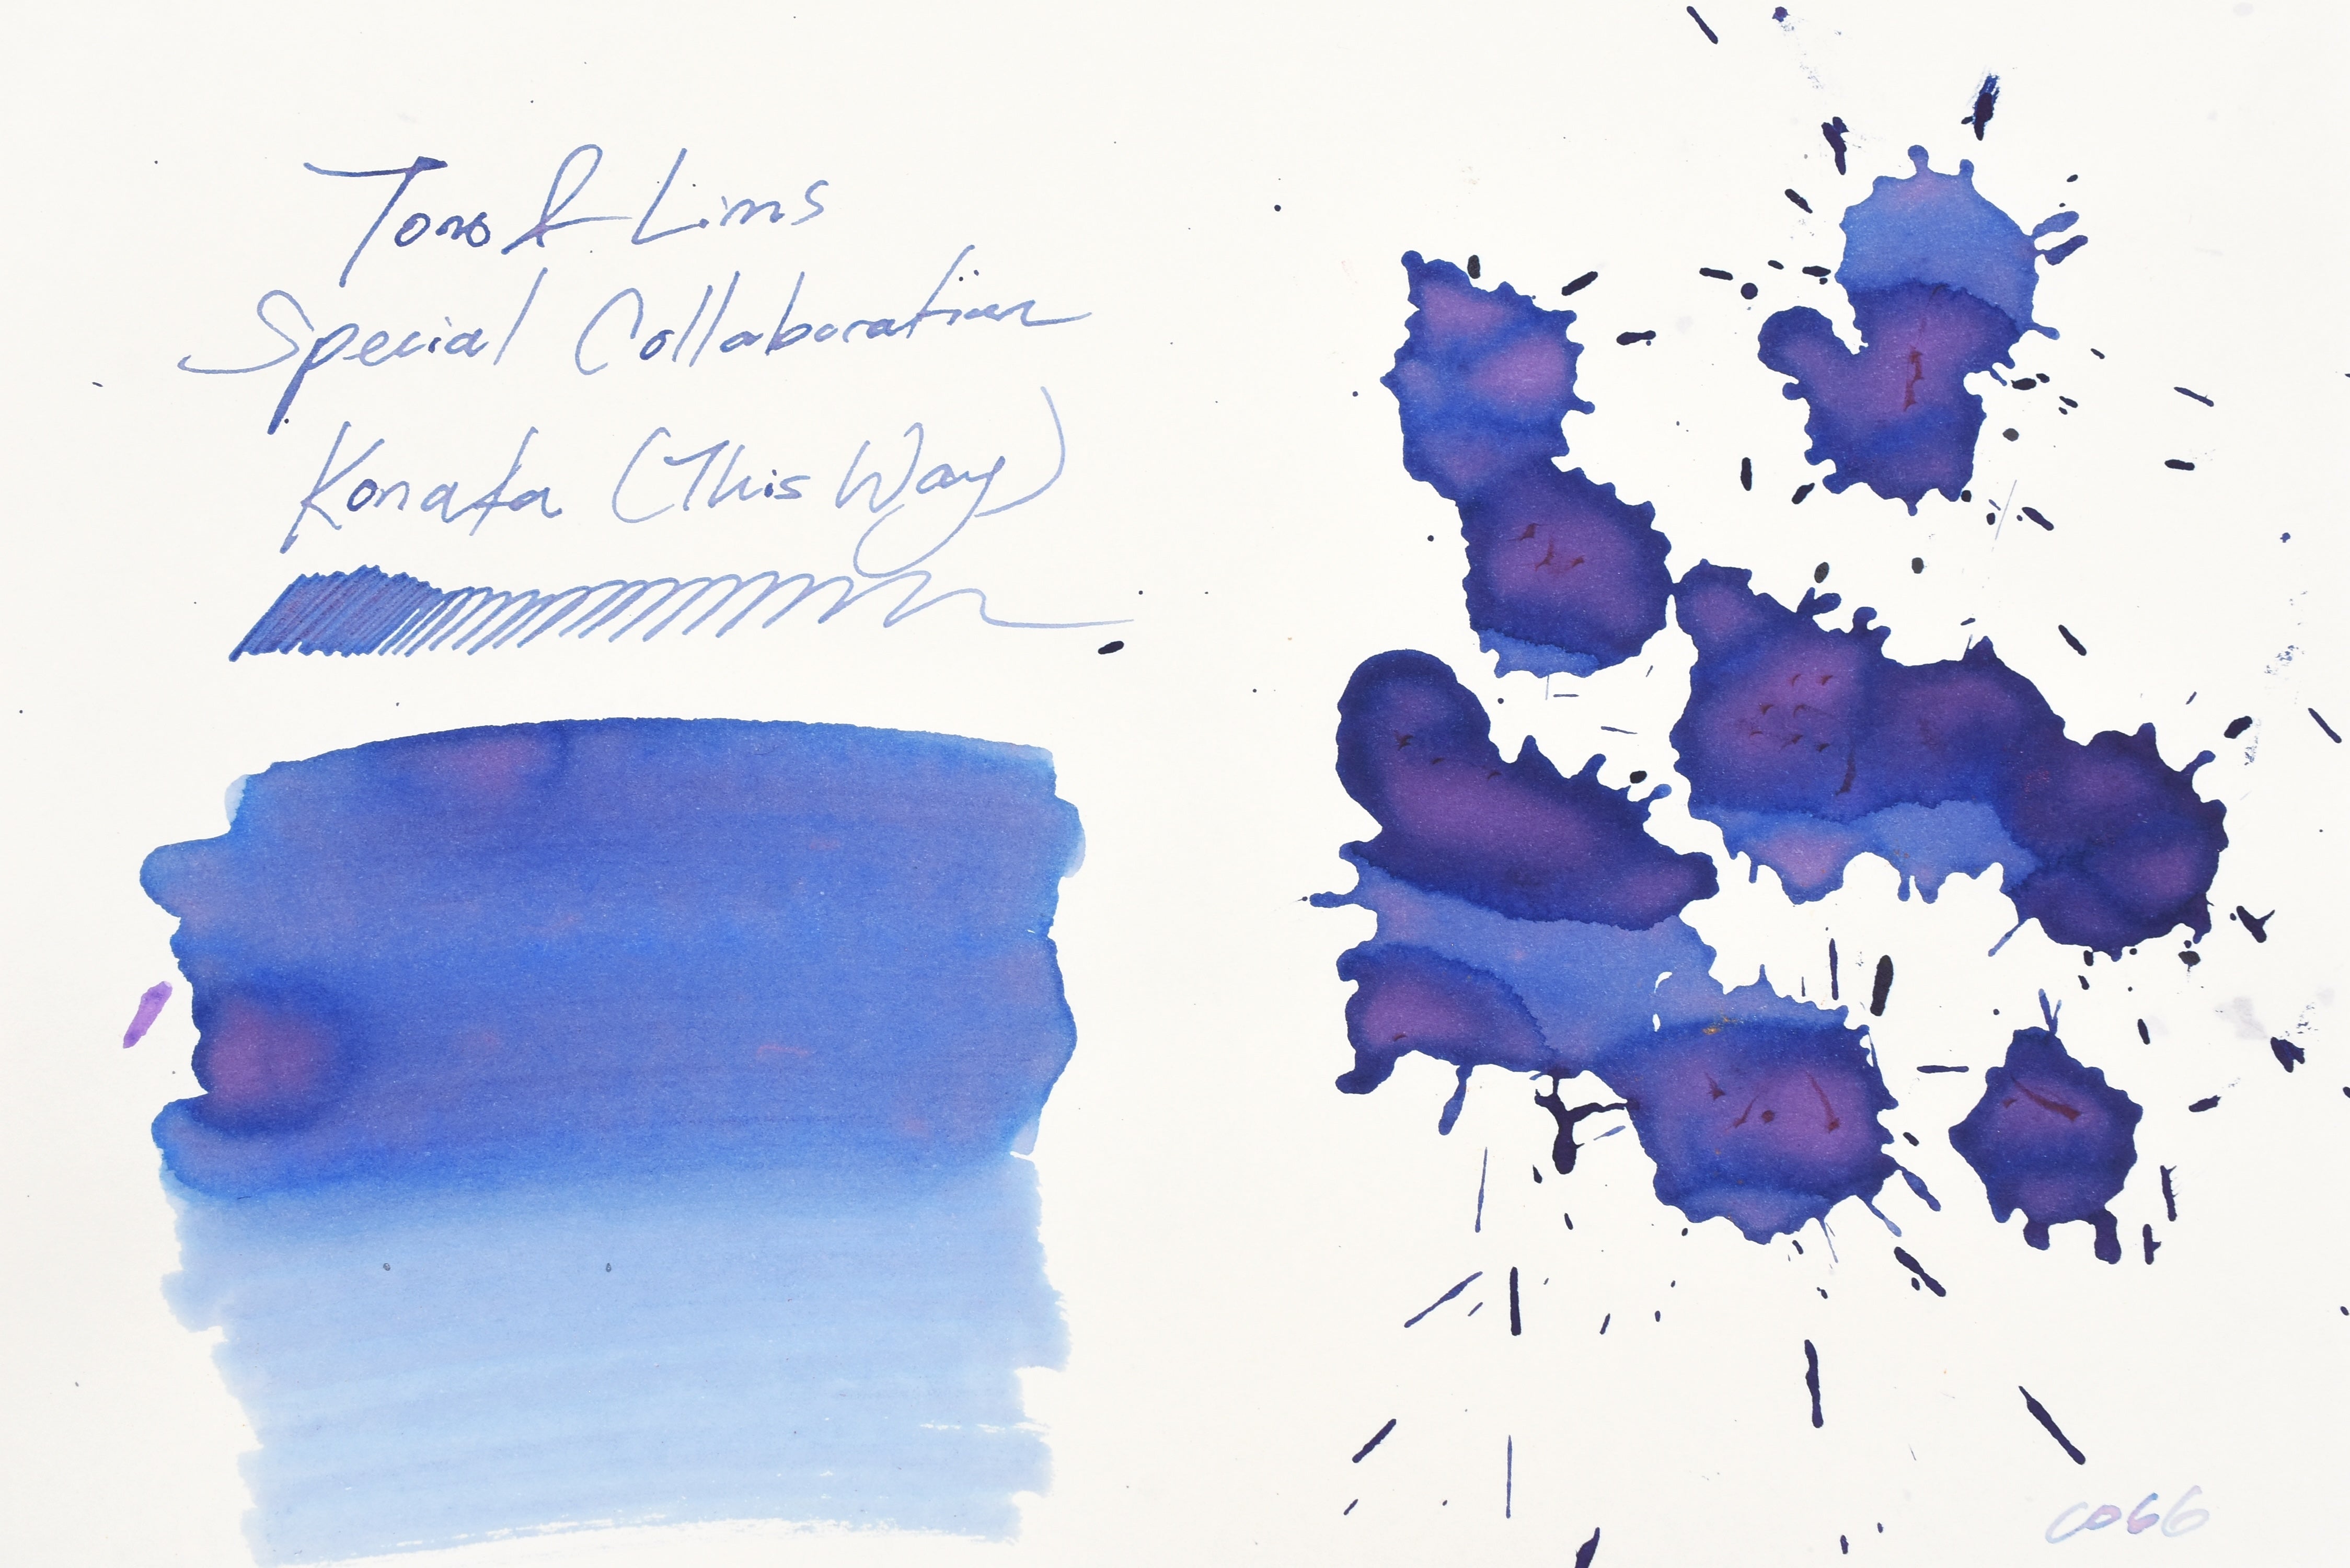 Tono & Lims
Special Collaboration
Konata (This Way)
co66